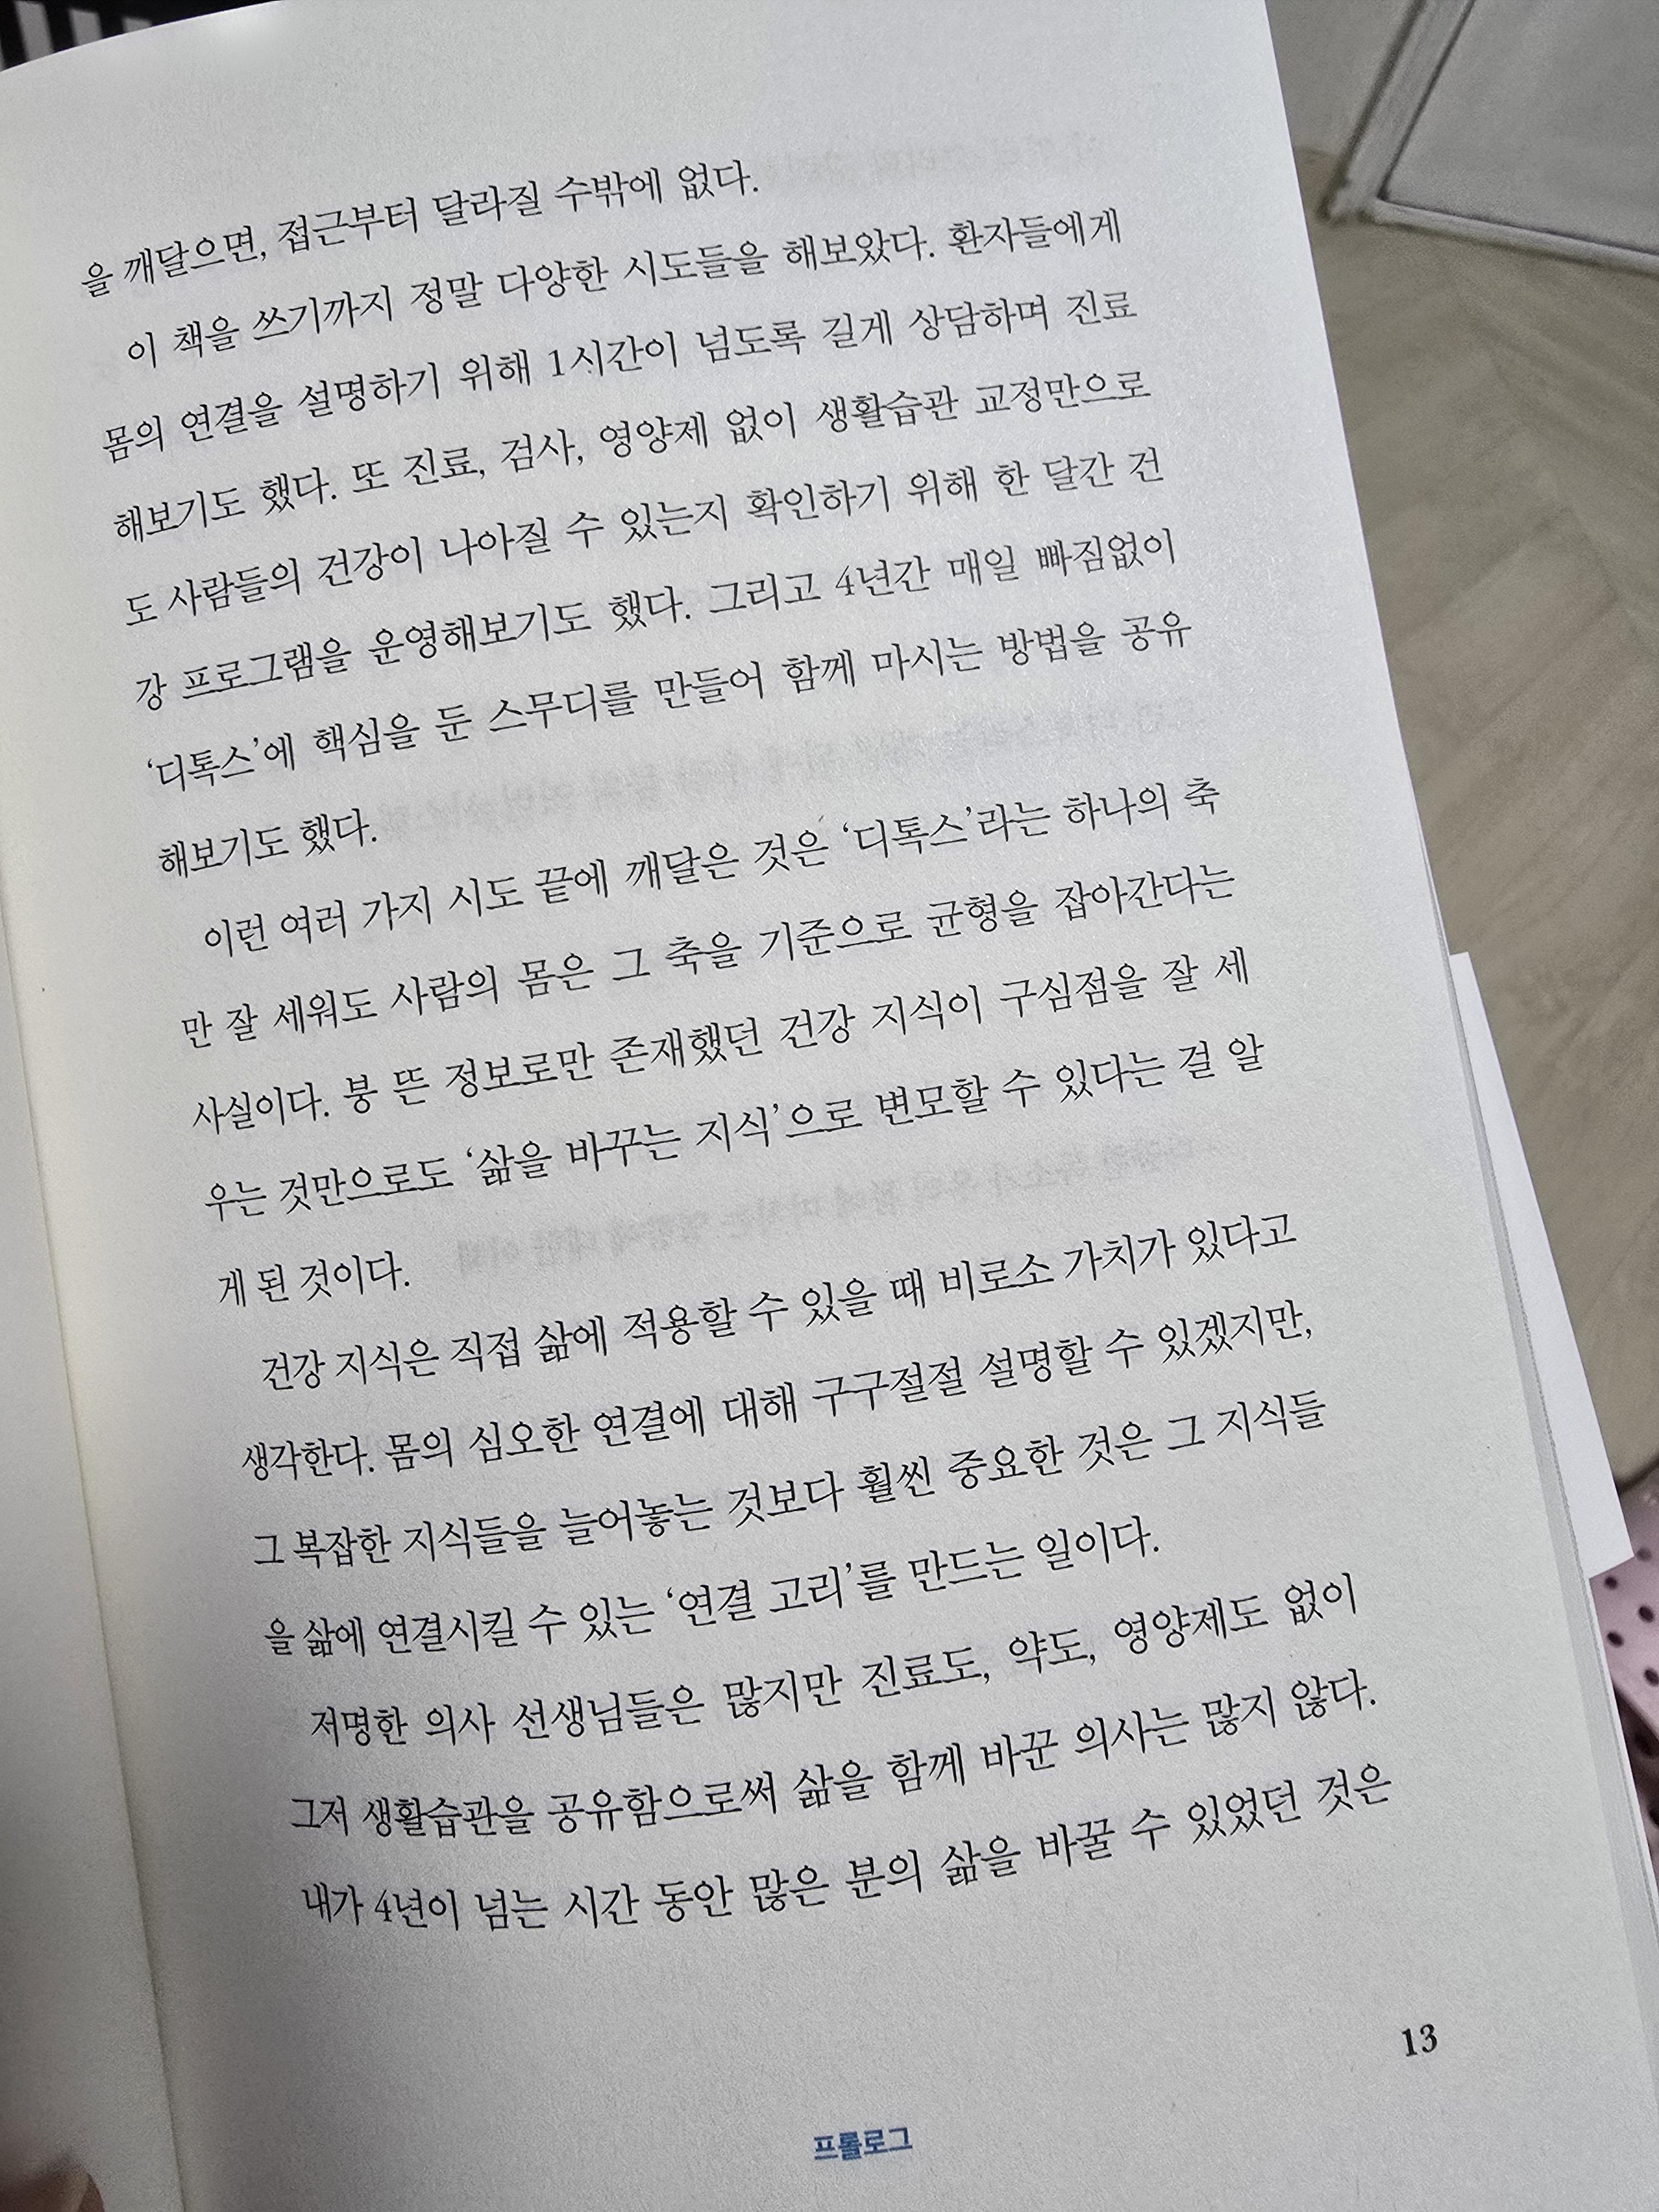 을 깨달으면, 접근부터 달라질 수밖에 없다.
이 책을 쓰기까지 정말 다양한 시도들을 해보았다. 환자들에게
몸의 연결을 설명하기 위해 1시간이 넘도록 길게 상담하며 진료
해보기도 했다. 또 진료, 검사, 영양제 없이 생활습관 교정만으로
도 사람들의 건강이 나아질 수 있는지 확인하기 위해 한 달간 건
강 프로그램을 운영해보기도 했다. 그리고 4년간 매일 빠짐없이
‘디톡스’에 핵심을 둔 스무디를 만들어 함께 마시는 방법을 공유
해보기도 했다.
이런 여러 가지 시도 끝에 깨달은 것은 ‘디톡스’라는 하나의 축
만 잘 세워도 사람의 몸은 그 축을 기준으로 균형을 잡아간다는
사실이다. 붕 뜬 정보로만 존재했던 건강 지식이 구심점을 잘 세
우는 것만으로도 ‘삶을 바꾸는 지식’으로 변모할 수 있다는 걸 알
게 된 것이다.
건강 지식은 직접 삶에 적용할 수 있을 때 비로소 가치가 있다고
생각한다. 몸의 심오한 연결에 대해 구구절절 설명할 수 있겠지만,
그 복잡한 지식들을 늘어놓는 것보다 훨씬 중요한 것은 그 지식들
을 삶에 연결시킬 수 있는 ‘연결 고리’를 만드는 일이다.
저명한 의사 선생님들은 많지만 진료도, 약도, 영양제도 없이
그저 생활습관을 공유함으로써 삶을 함께 바꾼 의사는 많지 않다.
내가 4년이 넘는 시간 동안 많은 분의 삶을 바꿀 수 있었던 것은
13
프롤로그